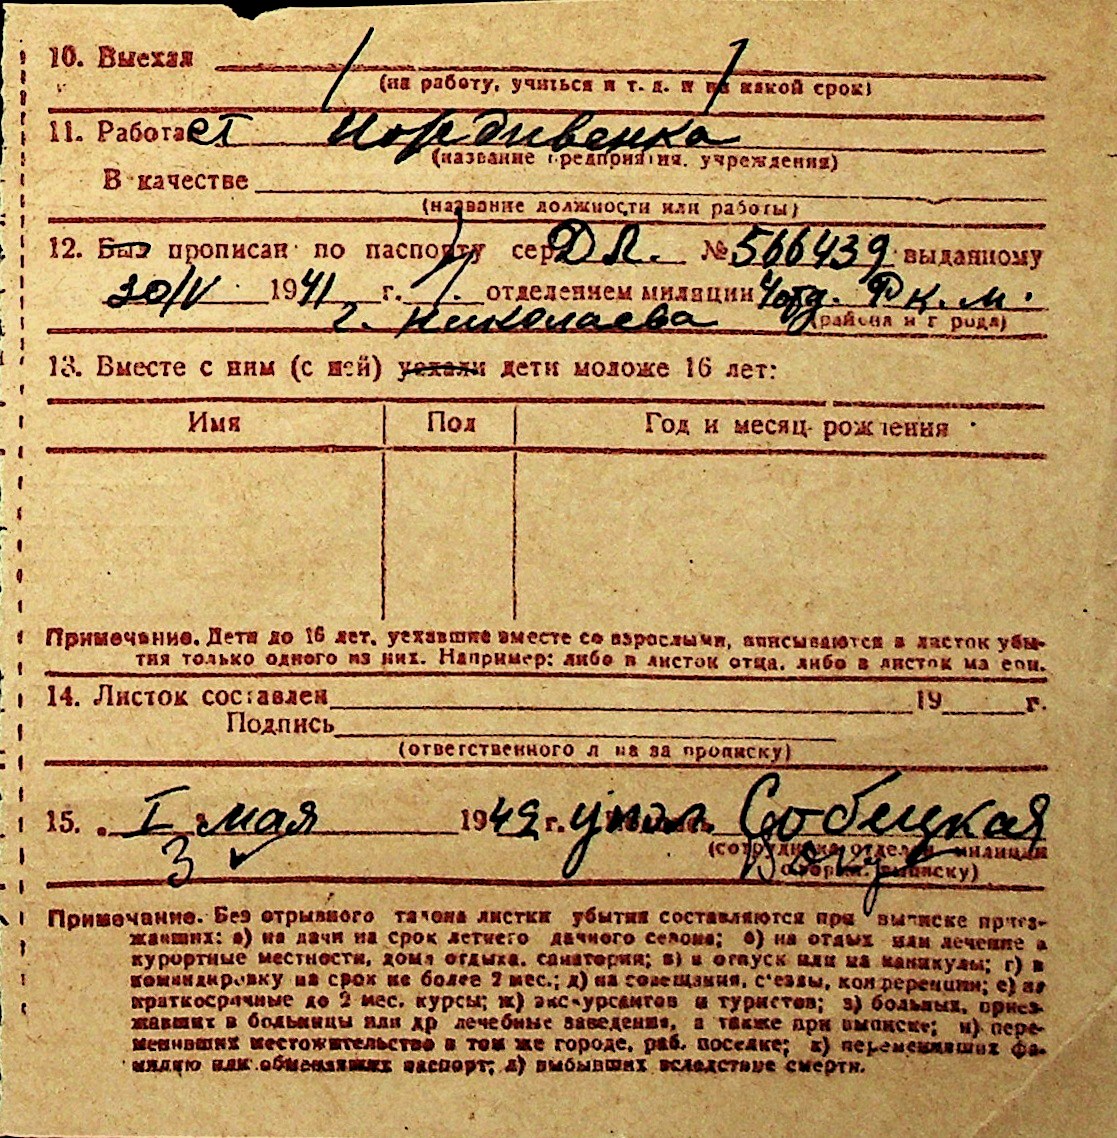 10. Выехал
(на работу, учиться и т. д. и на какой срок)
11. Работает иждивенка
(название предприятия, учреждения)
В качестве
(название должности или работы)
12. Был прописан по паспорту сер. ДЛ. № 566439 выданному
30/IV 1941 г. отделением милиции 4 отд. Р.К.М.
г. Николаева (района и города)
13. Вместе с ним (с ней) уехали дети моложе 16 лет:
Имя Пол Год и месяц рождения
Примечание. Дети до 16 лет, уехавшие вместе со взрослыми, вписываются в листок убы-
тия только одного из них. Например: либо в листок отца, либо в листок матери.
14. Листок составлен 19 г.
Подпись
(ответственного лица за прописку)
15. I мая 1942 г. упол. Собецкая
3 (сотрудника отделен. милиции
оформ. выписку)
Примечание. Без отрывного талона листки убытия составляются при выписке приез-
жавших: а) на дачи на срок летнего дачного сезона; б) на отдых или лечение в
курортные местности, дома отдыха, санатории; в) в отпуск или на каникулы; г) в
командировку на срок не более 2 мес.; д) на совещания, с'езды, конференции; е) на
краткосрочные до 2 мес. курсы; ж) экскурсантов и туристов; з) больных, приез-
жавших в больницы или др лечебные заведения, а также при выписке; и) пере-
менивших местожительство в том же городе, раб. поселке; к) переменивших фа-
милию или обменявших паспорт; л) выбывших вследствие смерти.